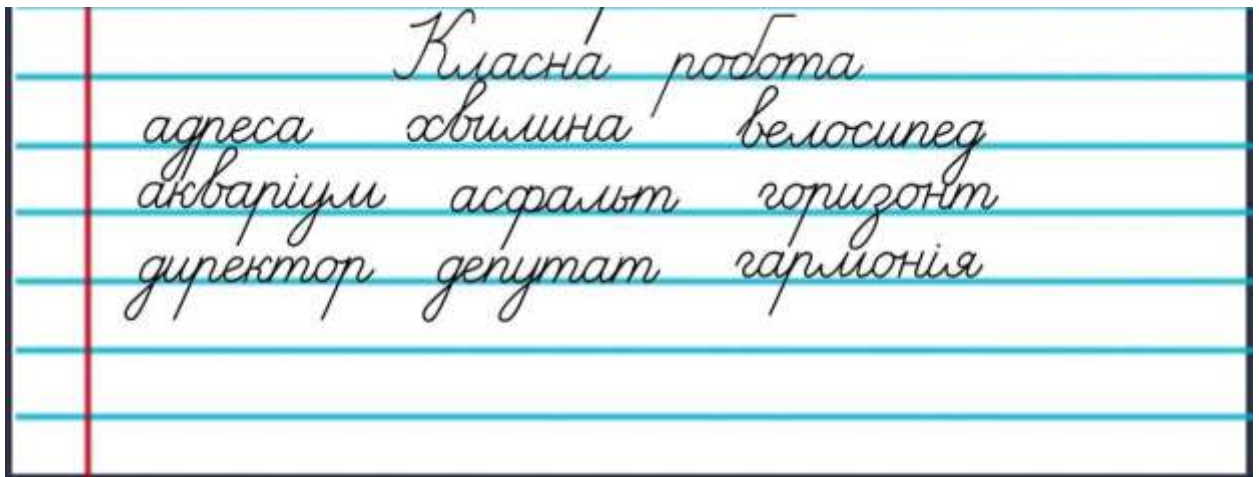 Класна робота
адреса хвилина велосипед
акваріум асфальт горизонт
директор депутат гармонія